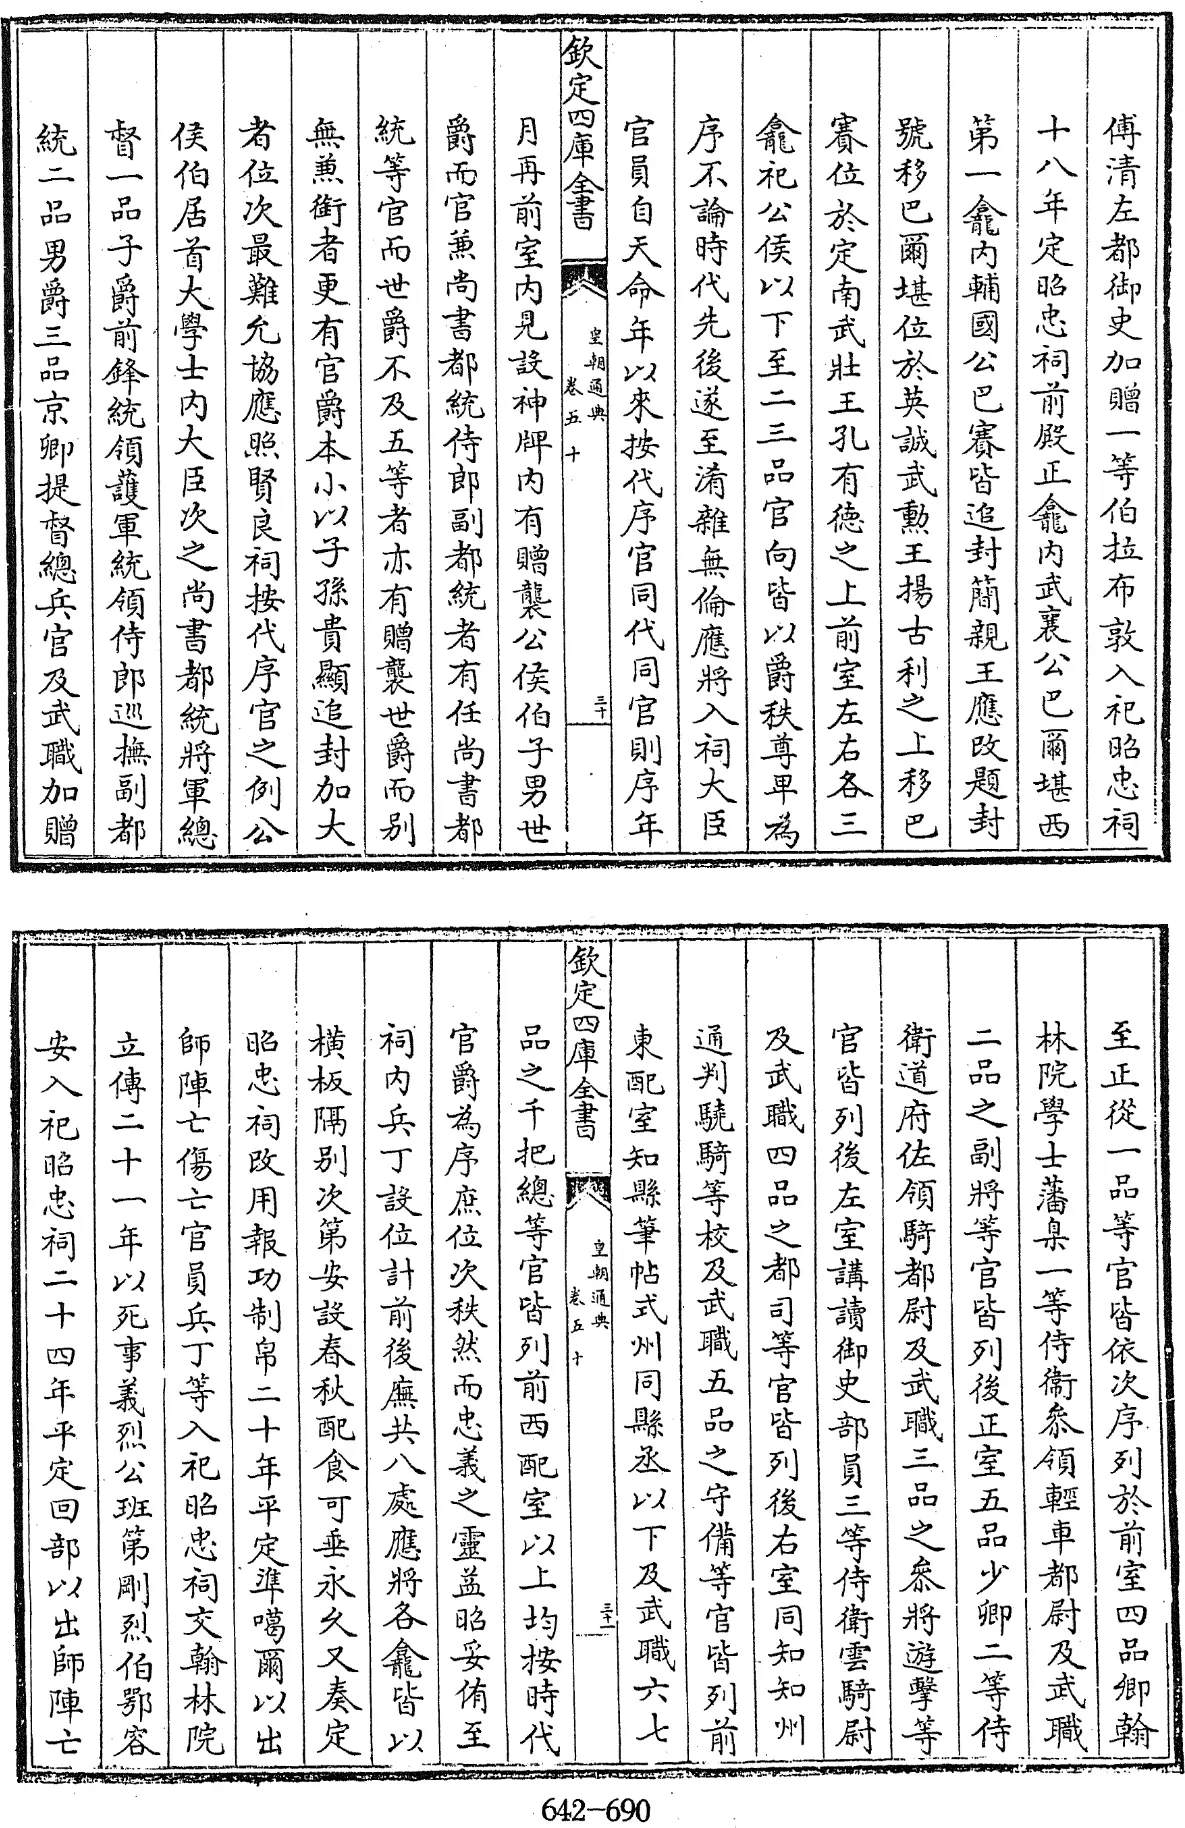 傅清左都御史加贈一等伯拉布敦入祀昭忠祠
十八年定昭忠祠前殿正龕内武襄公巴爾堪西
第一龕内輔國公巴賽皆追封簡親王應改題封
號移巴爾堪位於英誠武勲王揚古利之上移巴
賽位於定南武壯王孔有德之上前室左右各三
龕祀公侯以下至二三品官向皆以爵秩尊卑為
序不論時代先後遂至淆雜無倫應將入祠大臣
官員自天命年以來按代序官同代同官則序年
欽定四庫全書
皇朝通典
卷五十
三十
月再前室内見設神牌内有贈襲公侯伯子男世
爵而官兼尚書都統侍郎副都統者有任尚書都
統等官而世爵不及五等者亦有贈襲世爵而别
無兼銜者更有官爵本小以子孫貴顯追封加大
者位次最難允協應照賢良祠按代序官之例公
侯伯居首大學士内大臣次之尚書都統將軍總
督一品子爵前鋒統領護軍統領侍郎巡撫副都
統二品男爵三品京卿提督總兵官及武職加贈
至正從一品等官皆依次序列於前室四品卿翰
林院學士藩臬一等侍衛叅領輕車都尉及武職
二品之副將等官皆列後正室五品少卿二等侍
衛道府佐領騎都尉及武職三品之叅將游擊等
官皆列後左室講讀御史部員三等侍衛雲騎尉
及武職四品之都司等官皆列後右室同知知州
通判驍騎等校及武職五品之守備等官皆列前
東配室知縣筆帖式州同縣丞以下及武職六七
欽定四庫全書
皇朝通典
卷五十
三十一
品之千把總等官皆列前西配室以上均按時代
官爵為序庶位次秩然而忠義之靈益昭妥侑至
祠内兵丁設位計前後廡共八處應將各龕皆以
橫板隔别次第安設春秋配食可垂永久又奏定
昭忠祠改用報功制帛二十年平定準噶爾以出
師陣亡傷亡官員兵丁等入祀昭忠祠交翰林院
立傳二十一年以死事義烈公班第剛烈伯鄂容
安入祀昭忠祠二十四年平定回部以出師陣亡
642-690